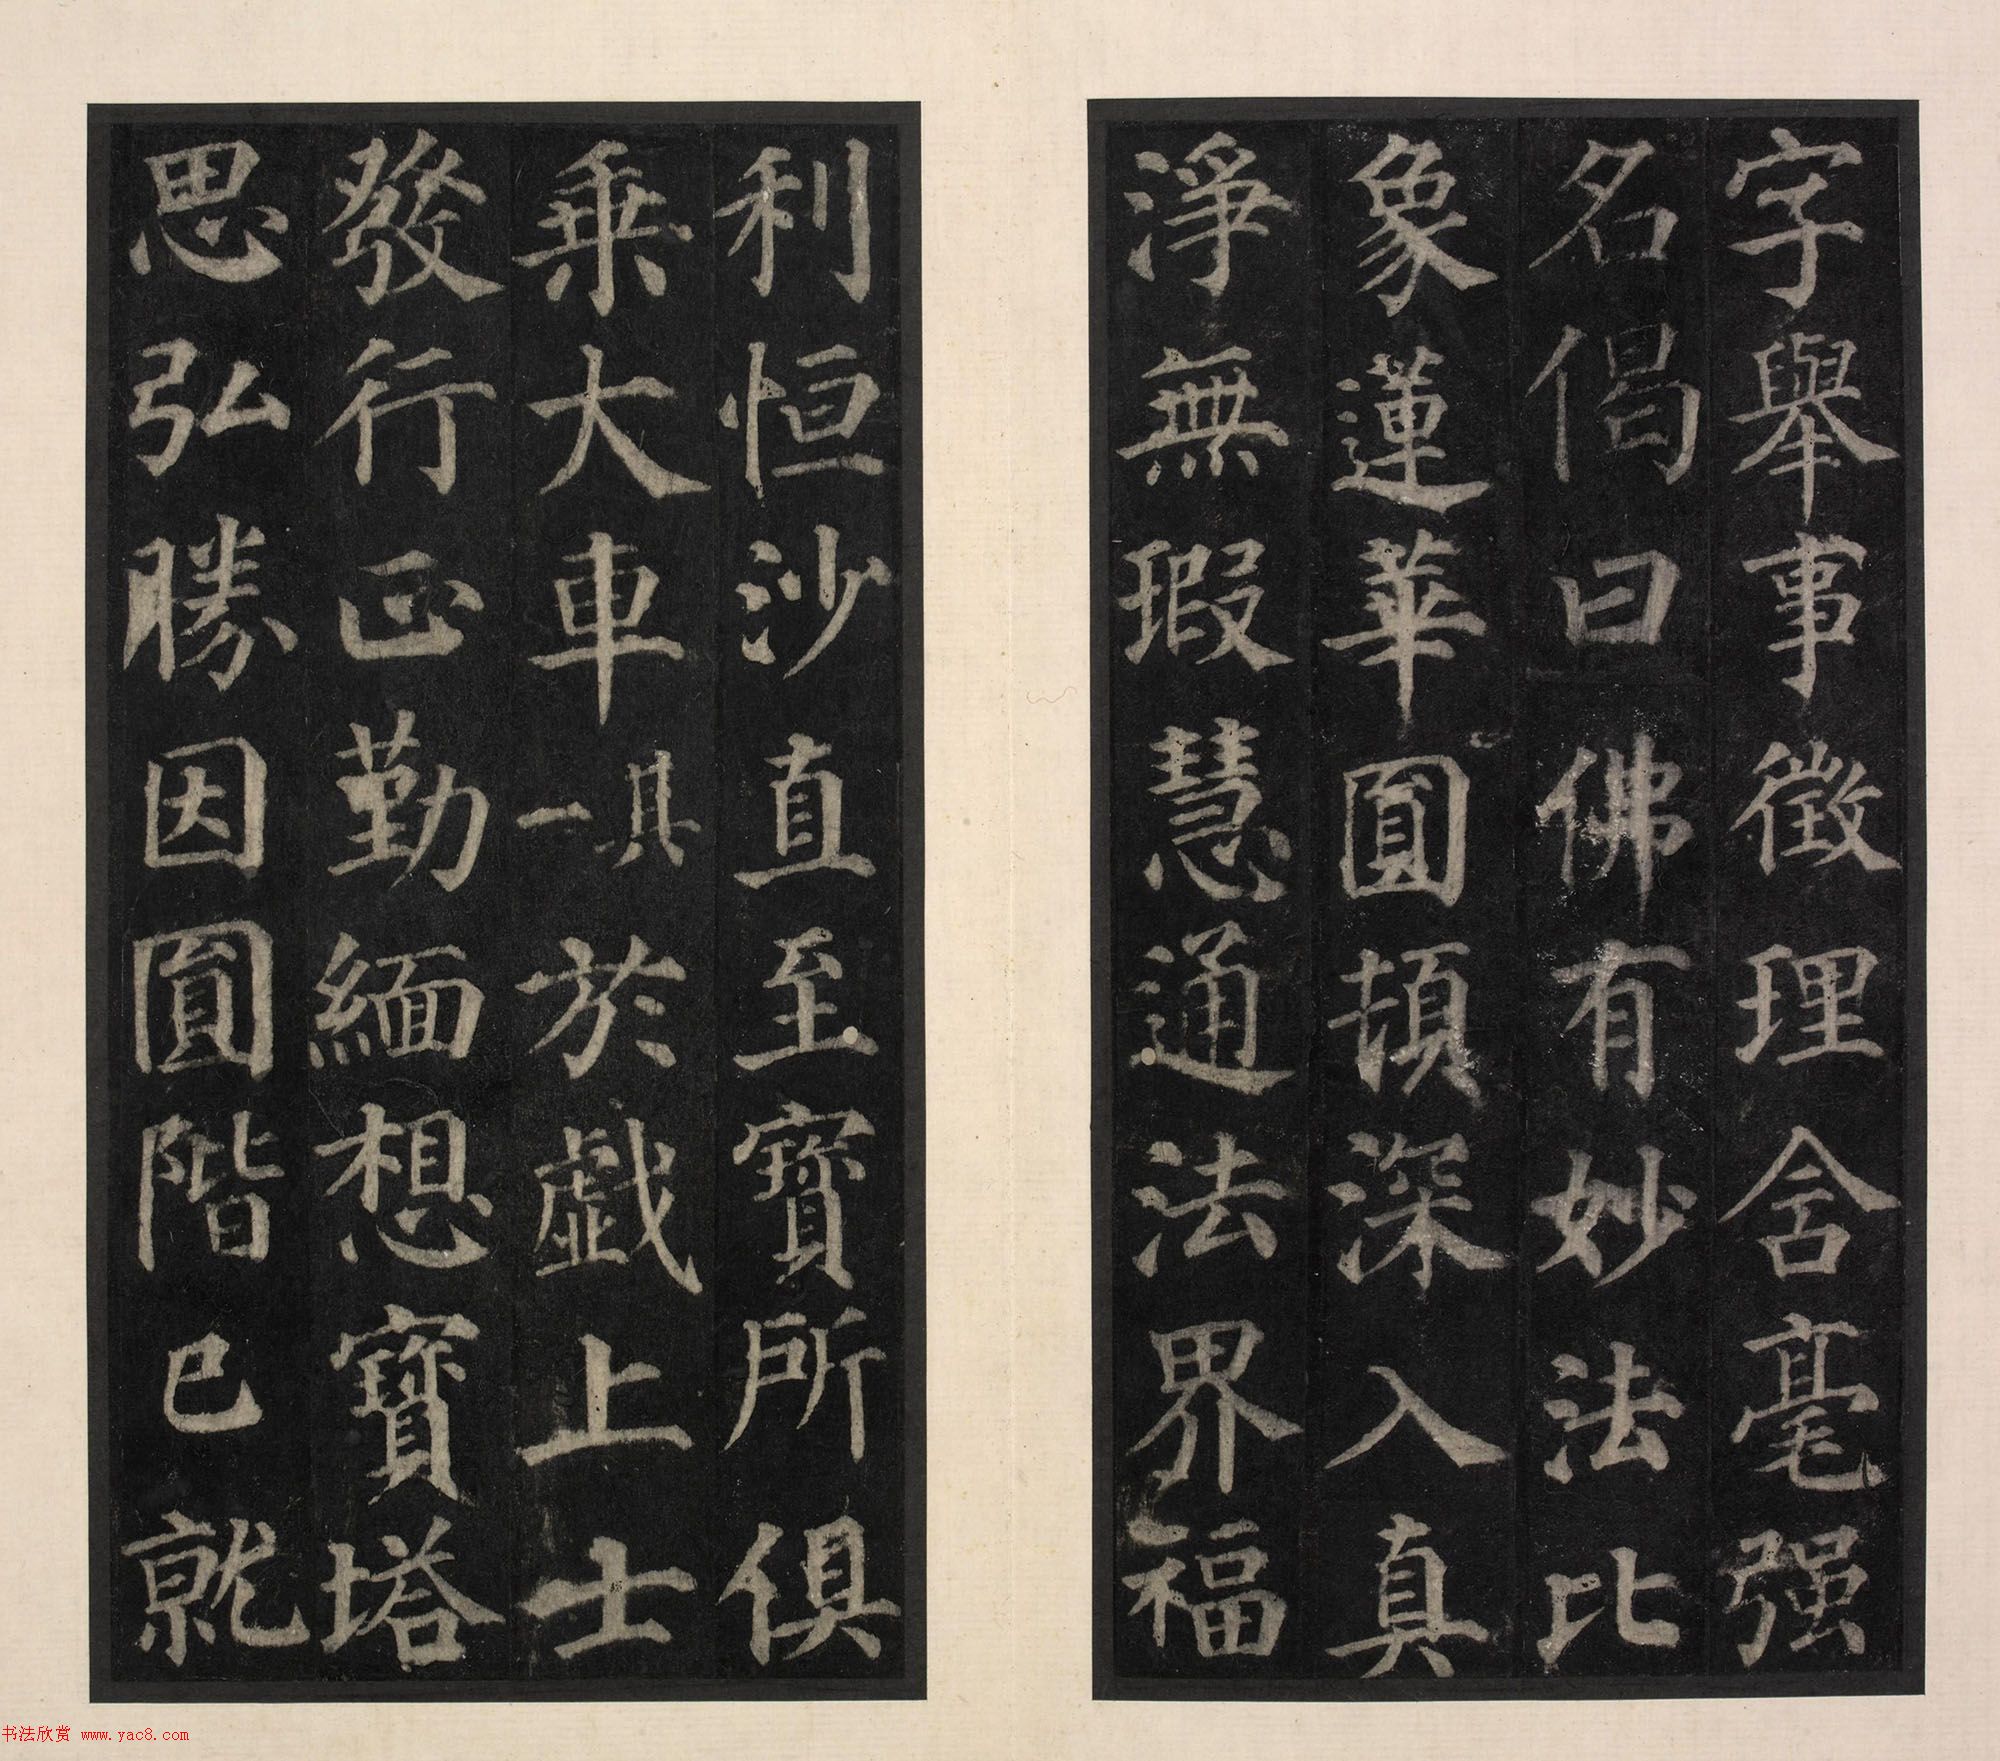 字舉事徵理含毫强
名偈曰佛有妙法比
象蓮華圓頓深入真
淨無瑕慧通法界福
利恒沙直至寶所俱
乗大車一具於戯上士
發行正勤緬想寶塔
思弘勝因圓階已就
书法欣赏 www.yac8.com